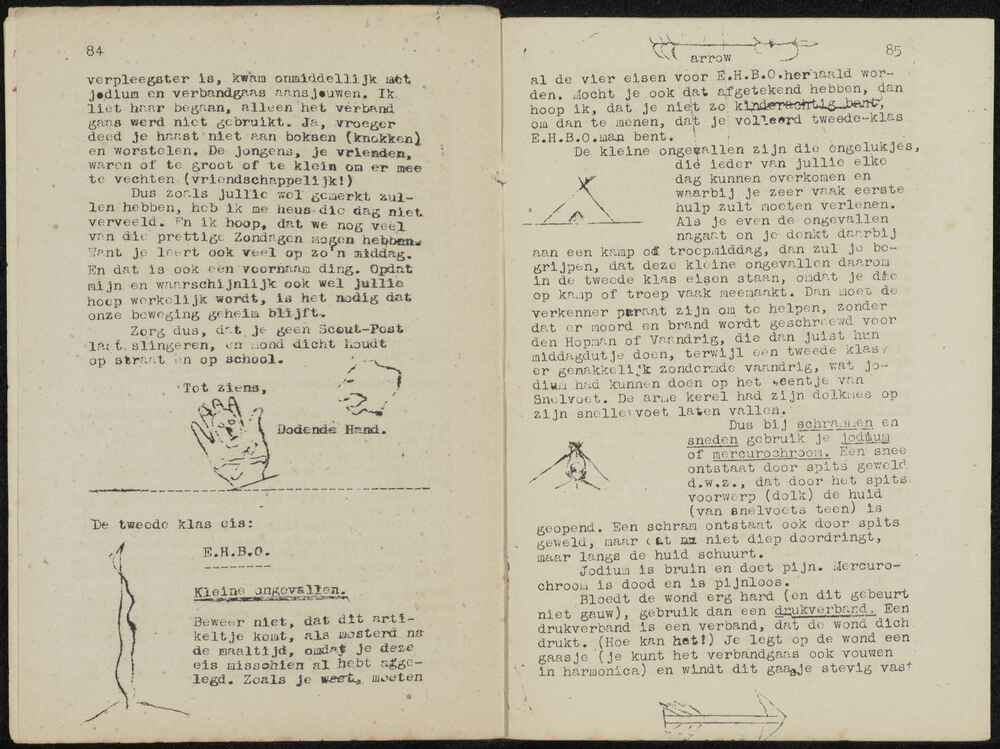 84
verpleegster is, kwam onmiddellijk met
jodium en verbandgaas aansjouwen. Ik
liet haar begaan, alleen het verband
gaas werd niet gebruikt. Ja, vroeger
deed je haast niet aan boksen (knokken)
en worstelen. De jongens, je vrienden,
waren of te groot of te klein om er mee
te vechten (vriendschappelijk!)
Dus zoals jullie wel gemerkt zul-
len hebben, heb ik me heus die dag niet
verveeld. En ik hoop, dat we nog veel
van die prettige Zondagen mogen hebben.
Want je leert ook veel op zo'n middag.
En dat is ook een voornaam ding. Opdat
mijn en waarschijnlijk ook wel jullie
hoop werkelijk wordt, is het nodig dat
onze beweging geheim blijft.
Zorg dus, dat je geen Scout-Post
laat slingeren, en mond dicht houdt
op straat en op school.
Tot ziens,
Dodende Hand.
De tweede klas eis:
E.H.B.O.
Kleine ongevallen.
Beweer niet, dat dit arti-
keltje komt, als mosterd na
de maaltijd, omdat je deze
eis misschien al hebt afge-
legd. Zoals je weet, moeten
arrow
85
al de vier eisen voor E.H.B.O.herhaald wor-
den. Mocht je ook dat afgetekend hebben, dan
hoop ik, dat je niet zo kinderachtig bent,
om dan te menen, dat je volleerd tweede-klas
E.H.B.O.man bent.
De kleine ongevallen zijn die ongelukjes,
die ieder van jullie elke
dag kunnen overkomen en
waarbij je zeer vaak eerste
hulp zult moeten verlenen.
Als je even de ongevallen
nagaat en je denkt daarbij
aan een kamp of troepmiddag, dan zul je be-
grijpen, dat deze kleine ongevallen daarom
in de tweede klas eisen staan, omdat je die
op kamp of troep vaak meemaakt. Dan moet de
verkenner paraat zijn om te helpen, zonder
dat er moord en brand wordt geschreewd voor
den Hopman of Vaandrig, die dan juist hun
middagdutje doen, terwijl een tweede klas
er gemakkelijk zondermde vaandrig, wat jo-
dium had kunnen doen op het teentje van
Snelvoet. De arme kerel had zijn dolkmes op
zijn snelle voet laten vallen.
Dus bij schrammen en
sneden gebruik je jodium
of mercurochroom. Een snee
ontstaat door spits geweld
d.w.z., dat door het spits
voorwerp (dolk) de huid
(van snelvoets teen) is
geopend. Een schram ontstaat ook door spits
geweld, maar dat nu niet diep doordringt,
maar langs de huid schuurt.
Jodium is bruin en doet pijn. Mercuro-
chroom is dood en is pijnloos.
Bloedt de wond erg hard (en dit gebeurt
niet gauw), gebruik dan een drukverband. Een
drukverband is een verband, dat de wond dich
drukt. (Hoe kan het!) Je legt op de wond een
gaasje (je kunt het verbandgaas ook vouwen
in harmonica) en windt dit gaasje stevig vast